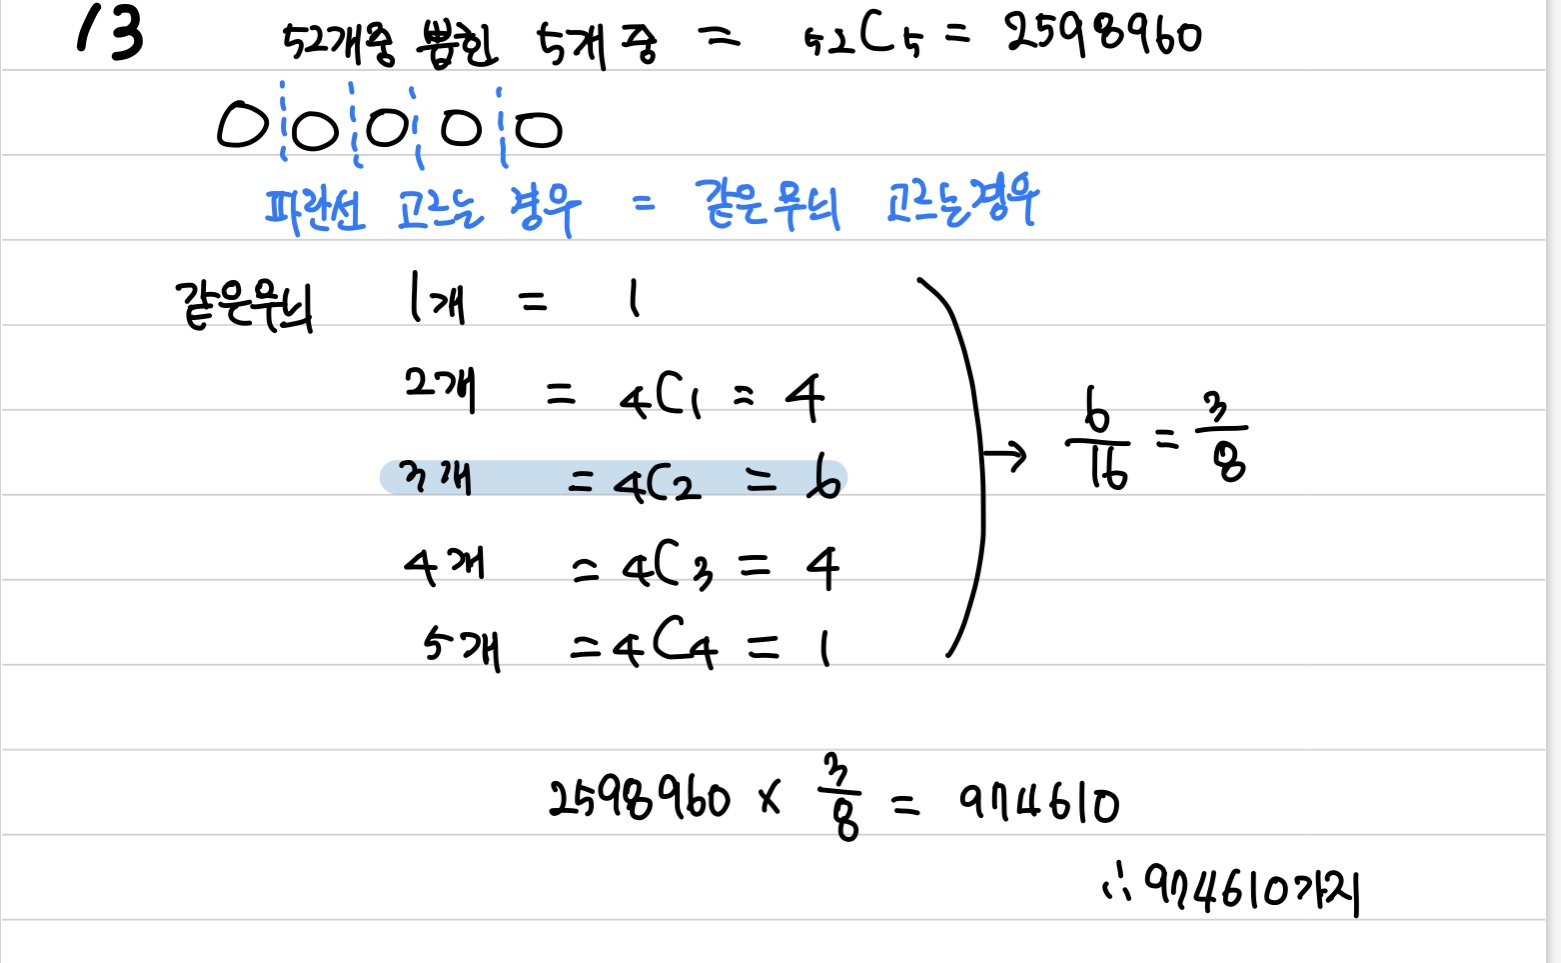 13 52개중 뽑힌 5개중 = ₅₂C₅ = 2598960
파란선 고르는 경우 = 같은 무늬 고르는경우
같은무늬 1개 = 1
2개 = ₄C₁ = 4
3개 = ₄C₂ = 6 → 6/16 = 3/8
4개 = ₄C₃ = 4
5개 = ₄C₄ = 1
2598960 × 3/8 = 974610
∴ 974610가지